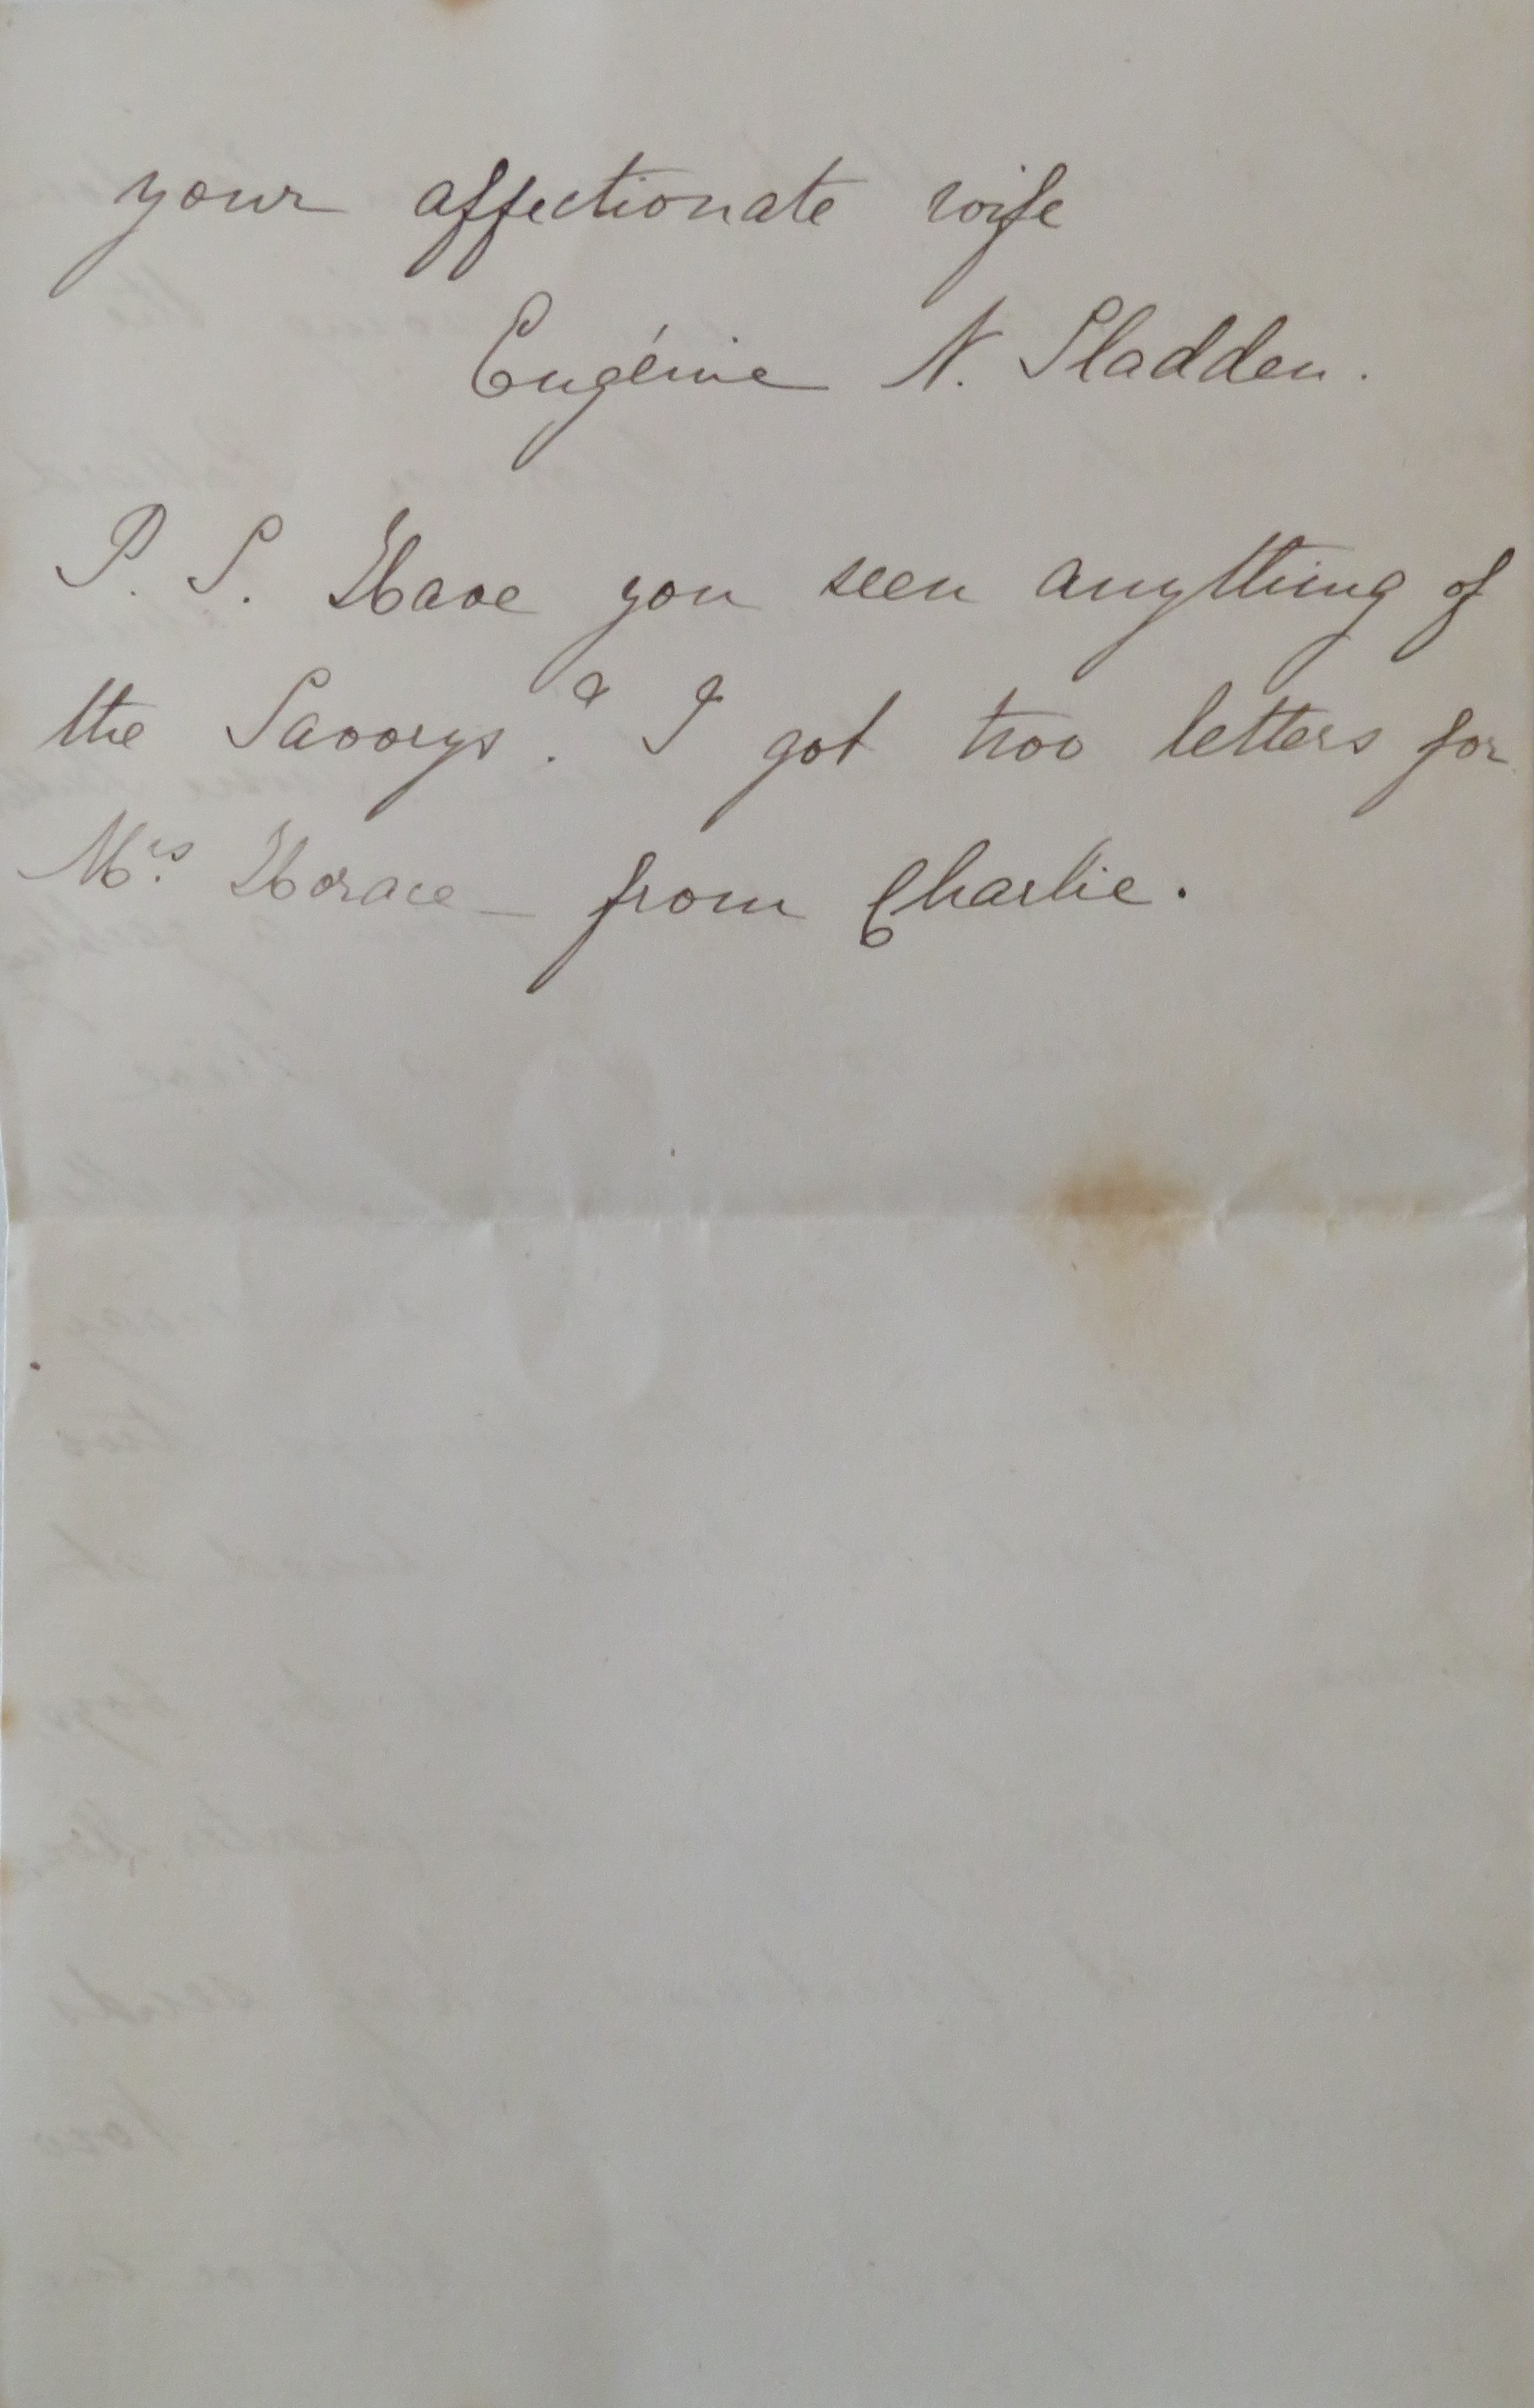 your affectionate wife
Eugénie N. Sladden.
P. S. Have you seen anything of
the Savorys? I got two letters for
Mrs. Horace – from Charlie.